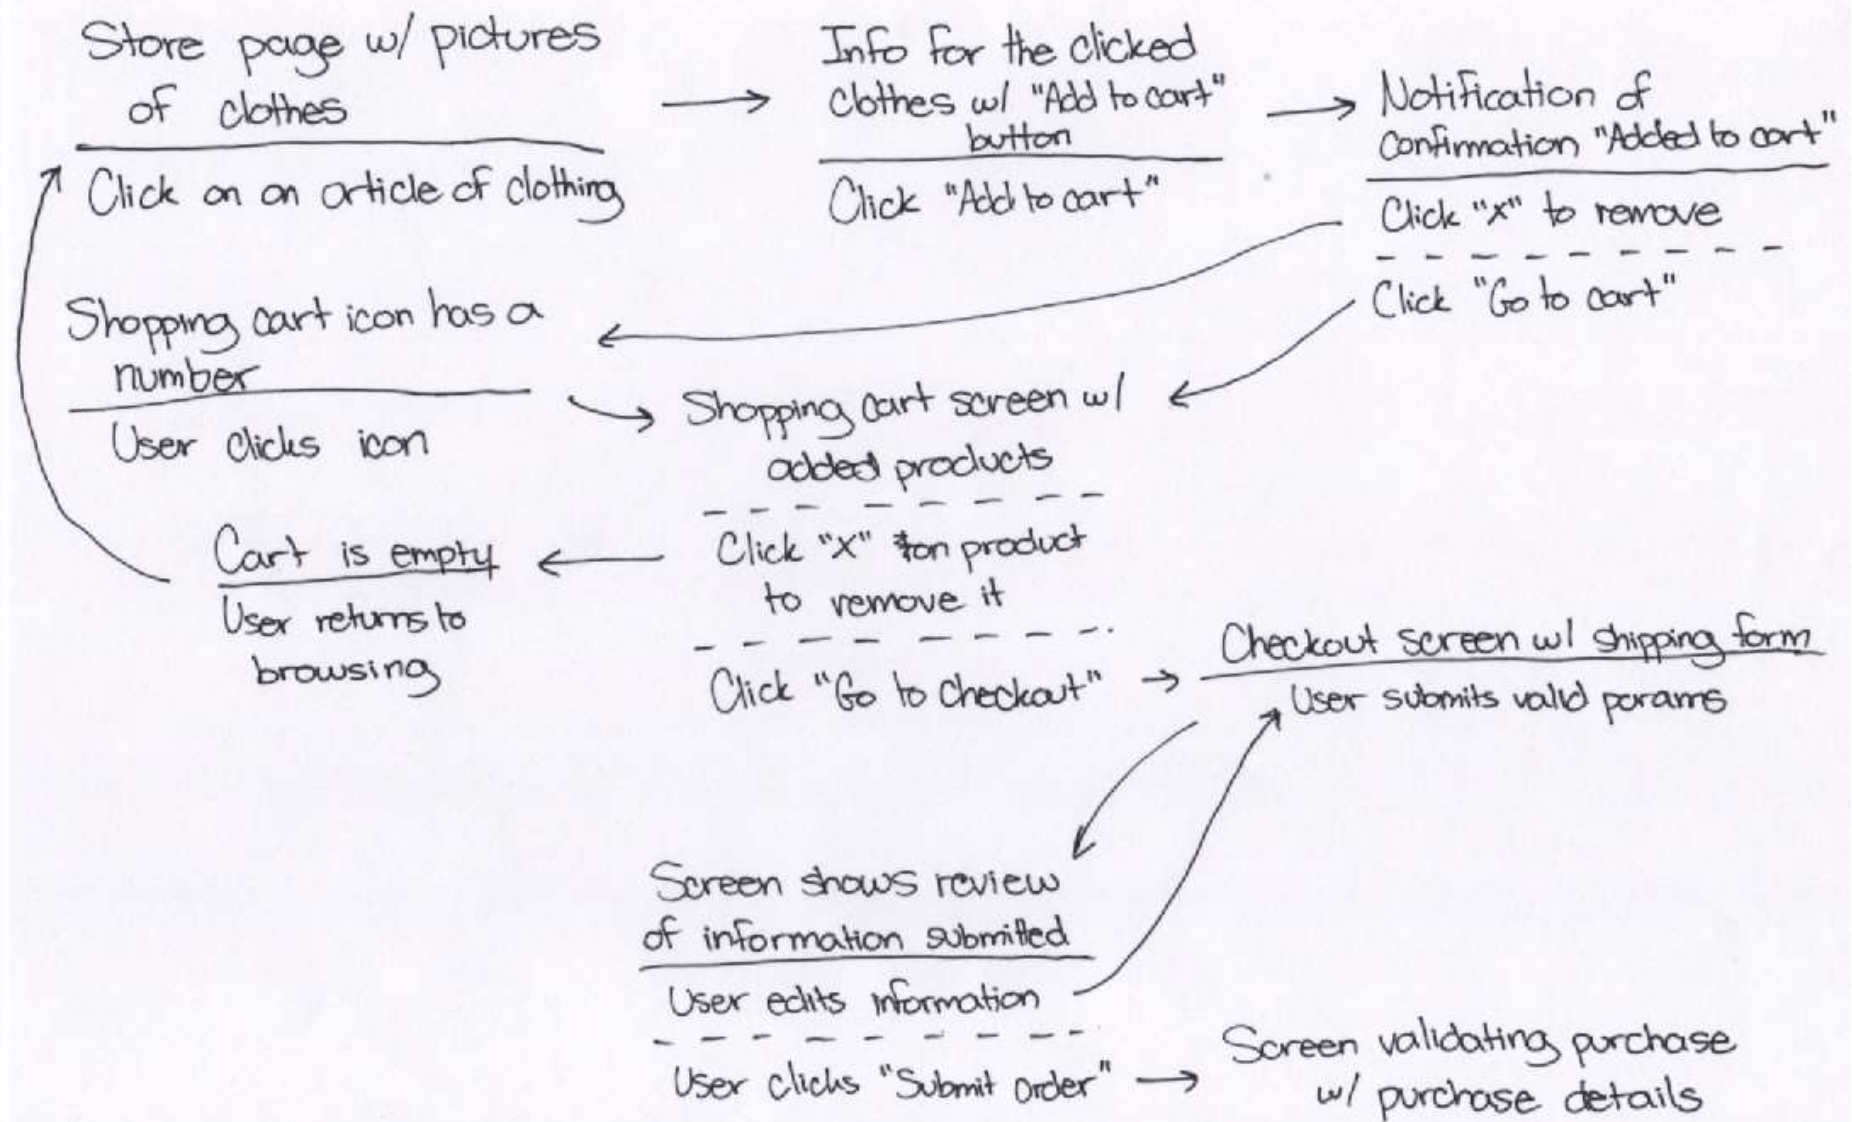 Store page w/ pictures
of clothes
Click on an article of clothing
Info for the clicked
clothes w/ "Add to cart"
button
Click "Add to cart"
Notification of
confirmation "Added to cart"
Click "x" to remove
Click "Go to cart"
Shopping cart icon has a
number
User clicks icon
Shopping cart screen w/
added products
Click "x" on product
to remove it
Click "Go to Checkout"
Cart is empty
User returns to
browsing
Checkout screen w/ shipping form
User submits valid params
Screen shows review
of information submitted
User edits information
User clicks "Submit order"
Screen validating purchase
w/ purchase details